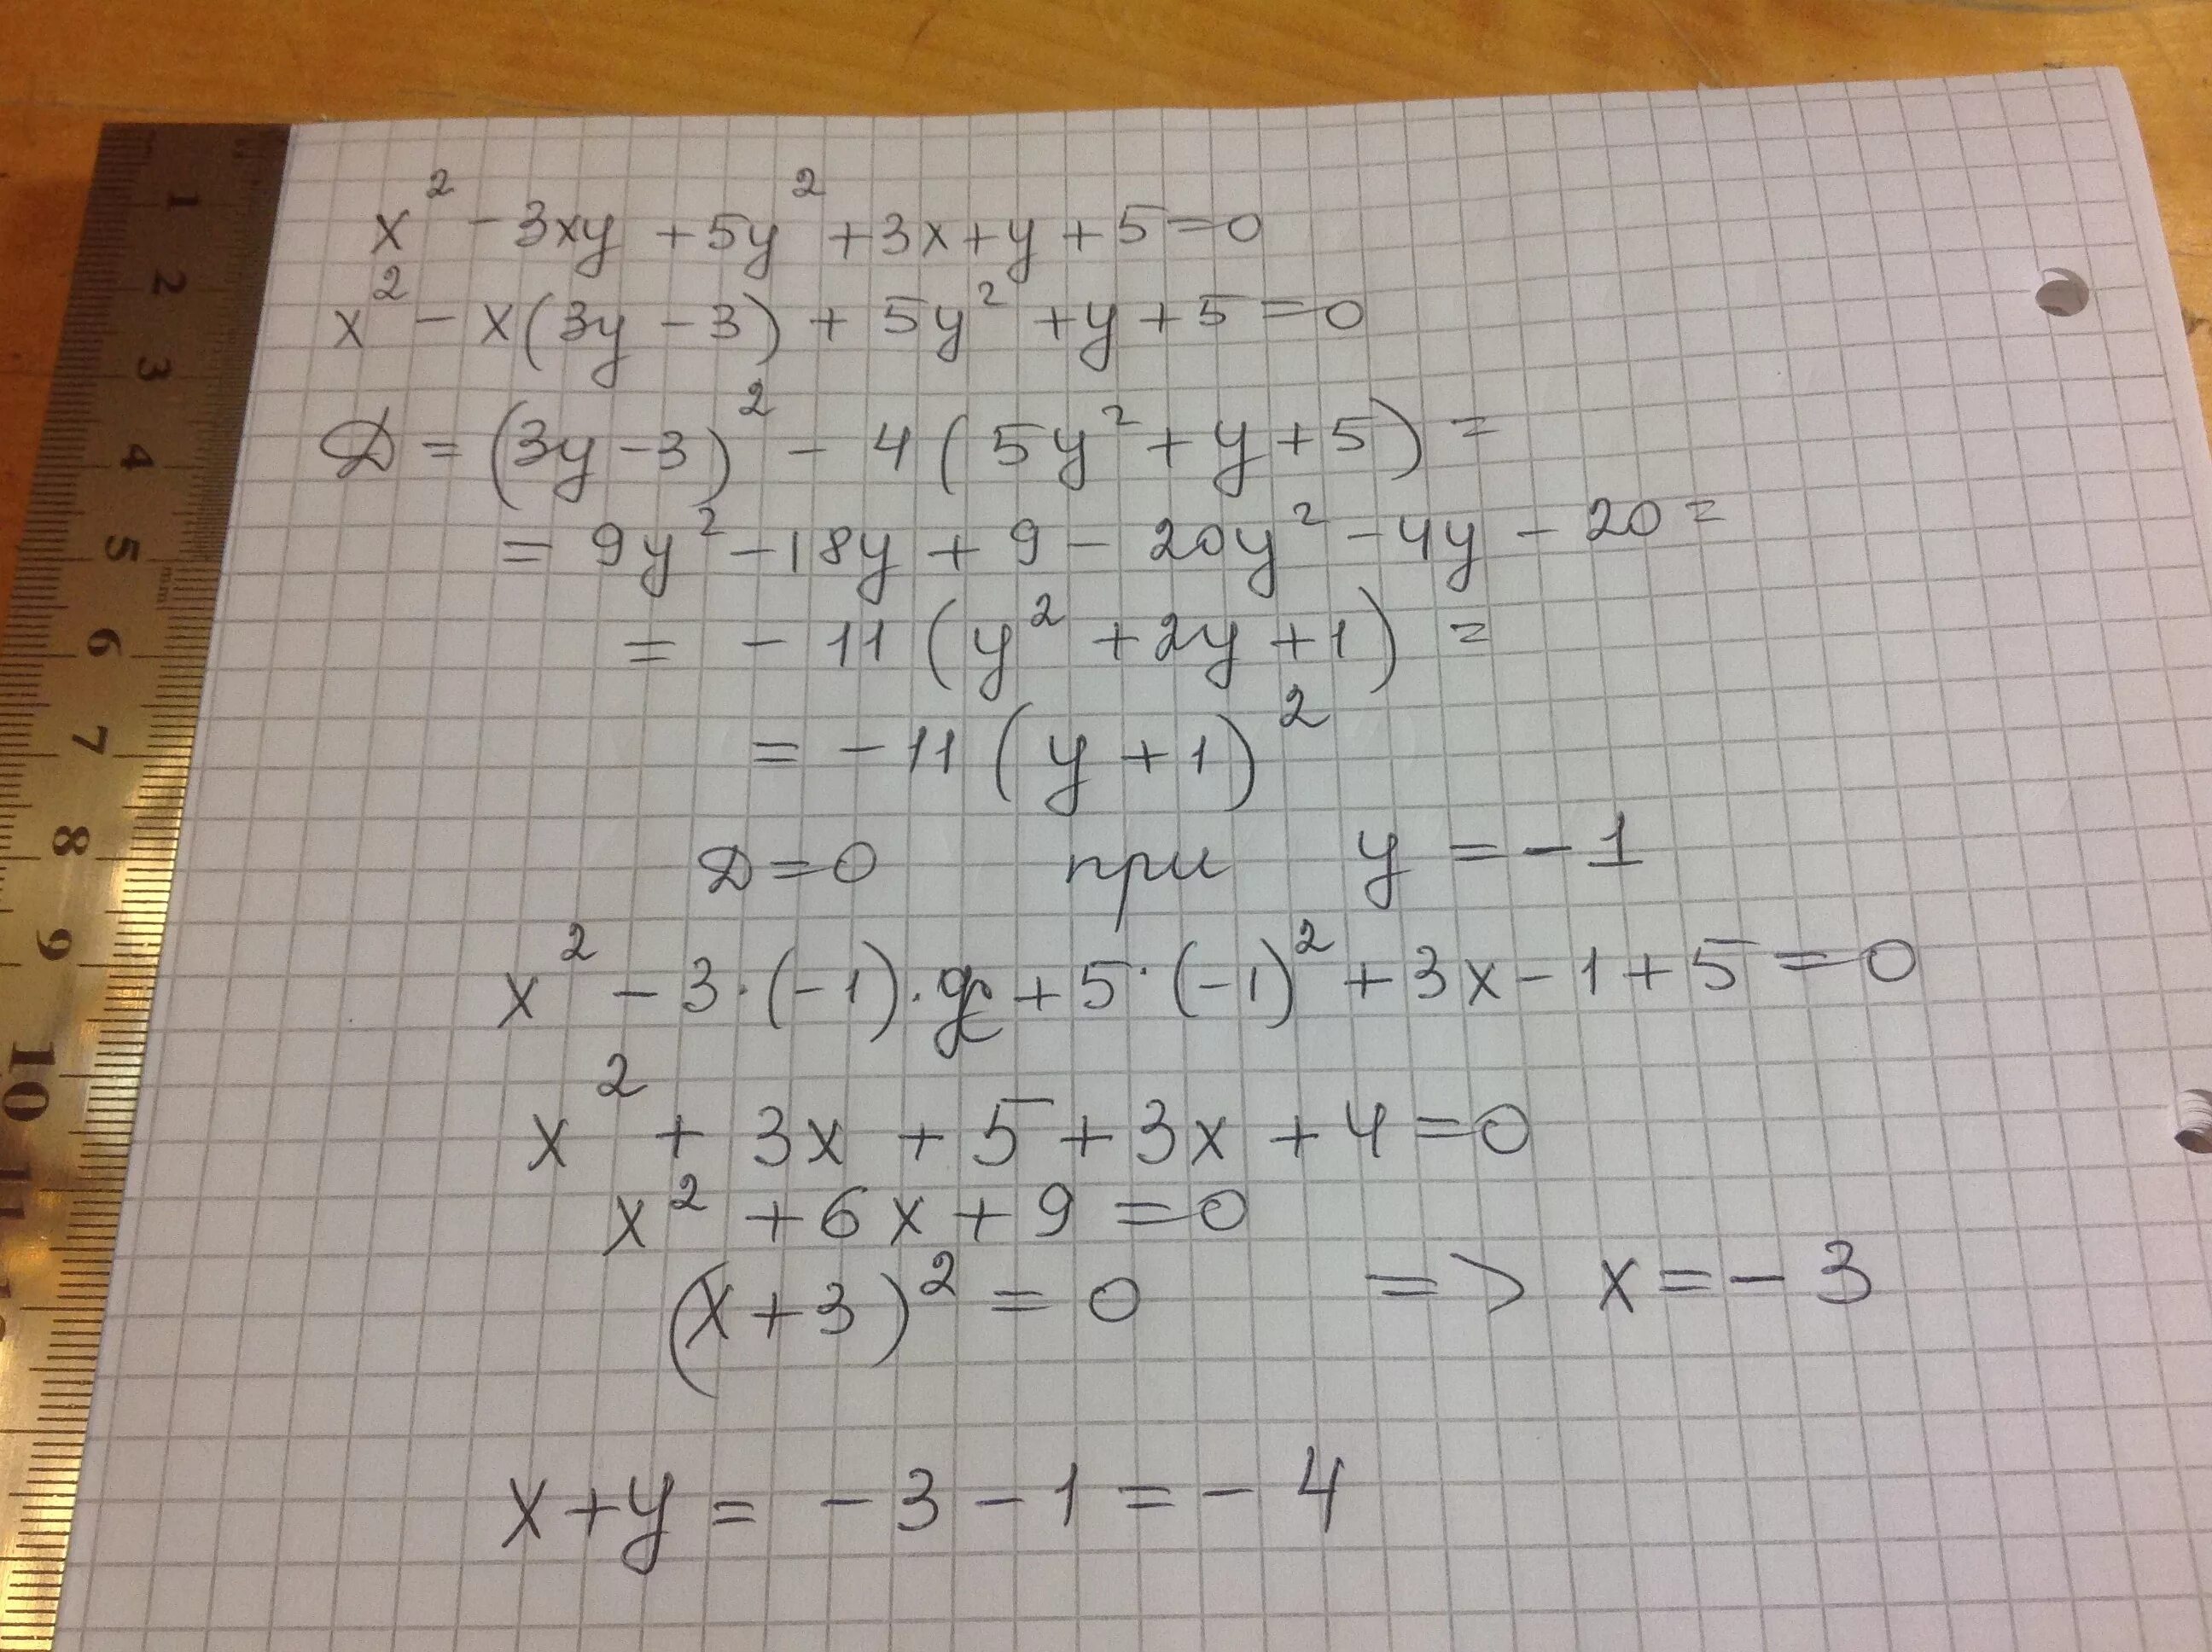 x² - 3xy + 5y² + 3x + y + 5 = 0
x² - x(3y - 3) + 5y² + y + 5 = 0
D = (3y - 3)² - 4(5y² + y + 5) =
= 9y² - 18y + 9 - 20y² - 4y - 20 =
= - 11 (y² + 2y + 1) =
= - 11 (y + 1)²
D = 0 при y = - 1
x² - 3·(-1)·x + 5·(-1)² + 3x - 1 + 5 = 0
x² + 3x + 5 + 3x + 4 = 0
x² + 6x + 9 = 0
(x + 3)² = 0 => x = - 3
x + y = - 3 - 1 = - 4
1
2
3
4
5
mm
6
7
8
9
10
11